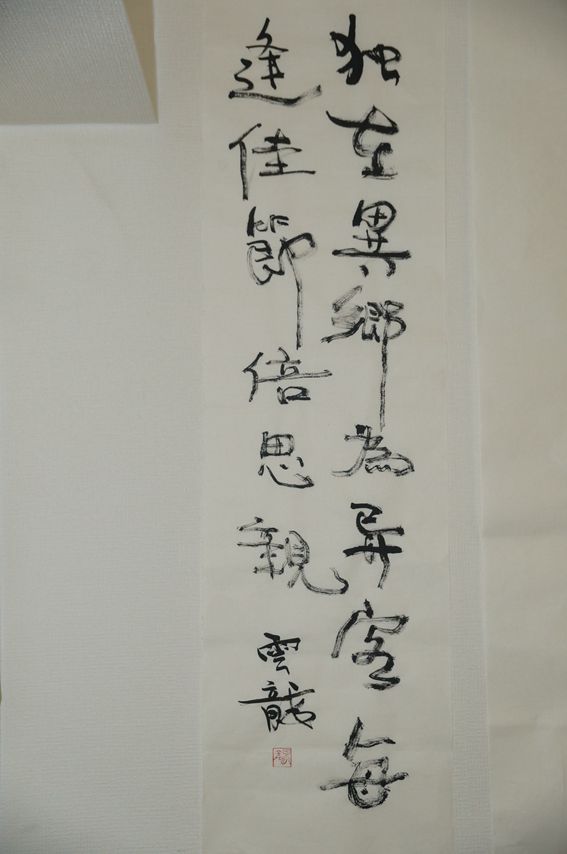 独在異鄉為异客每
逢佳節倍思親
雲龍